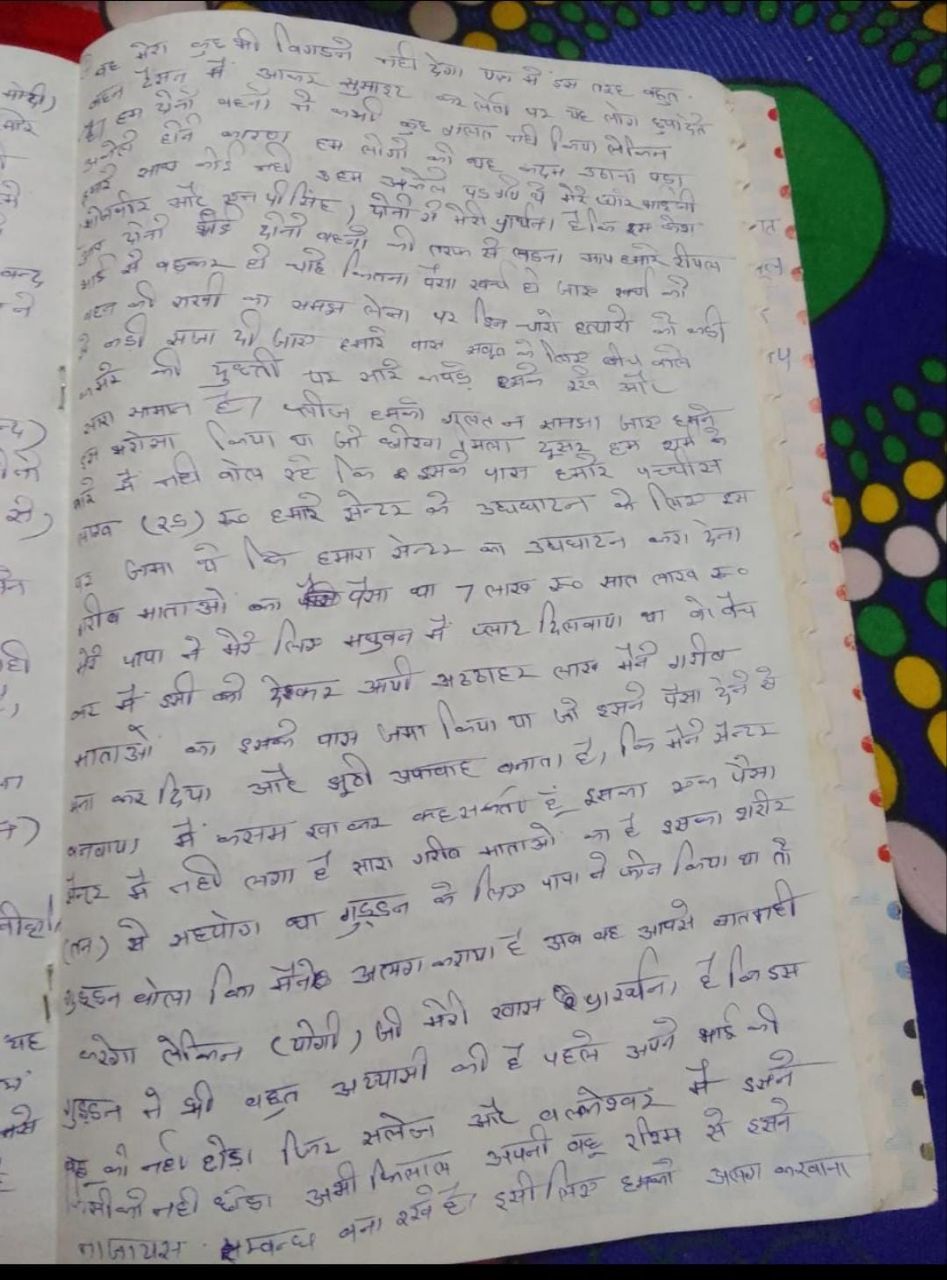 वह मेरा कुछ भी बिगडने नही देगा एक मे इस तरह बहुत
बहन टेंशन में आकर सुसाइट कर लेगी पर यह लोग छुपा देते
है हम दोनो बहनो ने कभी कुछ गलत नही किया लेकिन
अकेली होने कारण हम लोगो को यह कदम उठाना पडा
हमारे साथ कोई नही हम अकेले पड गए थे मेरे प्यारे भाई जी
और एन पी सिंह, दोनो से मेरी प्रार्थना है कि इस केश
दोनो भाई दोनो बहनो की तरफ से लडना आप हमारे रीयल
भाई से बढकर हो चाहे कितना पैसा खर्च हो जाए खर्च को
बहन की राखी का समझ लेना पर इन चारो हत्यारो को कडी
से कडी सजा दी जाए हमारे पास सबूत के लिए बीच वाले
कमरे की दुछत्ती पर सारे कपडे इसके रखे और
सारा सामान है, प्लीज हमको गलत न समझा जाए हमने
इस भरोसा किया था जो धोखा मिला दूसर हम शर्म के
बारे में नही बोल रहे कि इसके पास हमारे पच्चीस
लाख (२५) रू० हमारे सेन्टर के उदघाटन के लिए इस
पर जमा थे कि हमारा सेन्टर का उदघाटन करा देना
गरीब माताओ का पैसा था 7 लाख रू० सात लाख रू०
मेरे पापा ने मेरे लिए मधुवन में प्लाट दिलवाया था वो बेच
कर में इसी को देकर आयी अटठाहर लाख मैने गरीब
माताओं का इसके पास जमा किया था जो इसने पैसा देने से
मना कर दिया और झूठी अफवाह बनाता है, कि मैने सेन्टर
बनवाया में कसम खा कर कह सकती हूँ इसका एक पैसा
सेन्टर में नही लगा है सारा गरीब माताओ का है इसका शरीर
(तन) से सहयोग था गुड्डन के लिए पापा ने फोन किया था तो
गुड्डन बोला कि मैने अलग कराया है अब वह आपसे बात नही
करेगा लेकिन (योगी) जी मेरी खास प्रार्थना है कि इस
गुड्डन ने भी बहुत अय्यासी की है पहले अपने भाई की
बहू को नही छोडा फिर सलेज और वल्केश्वर में इसने
किसी को नही छोडा अभी फिलाल अपनी बहू रश्मि से इसने
नाजायस सम्बन्ध बना रखे है, इसी लिए हमको अलग करवाना